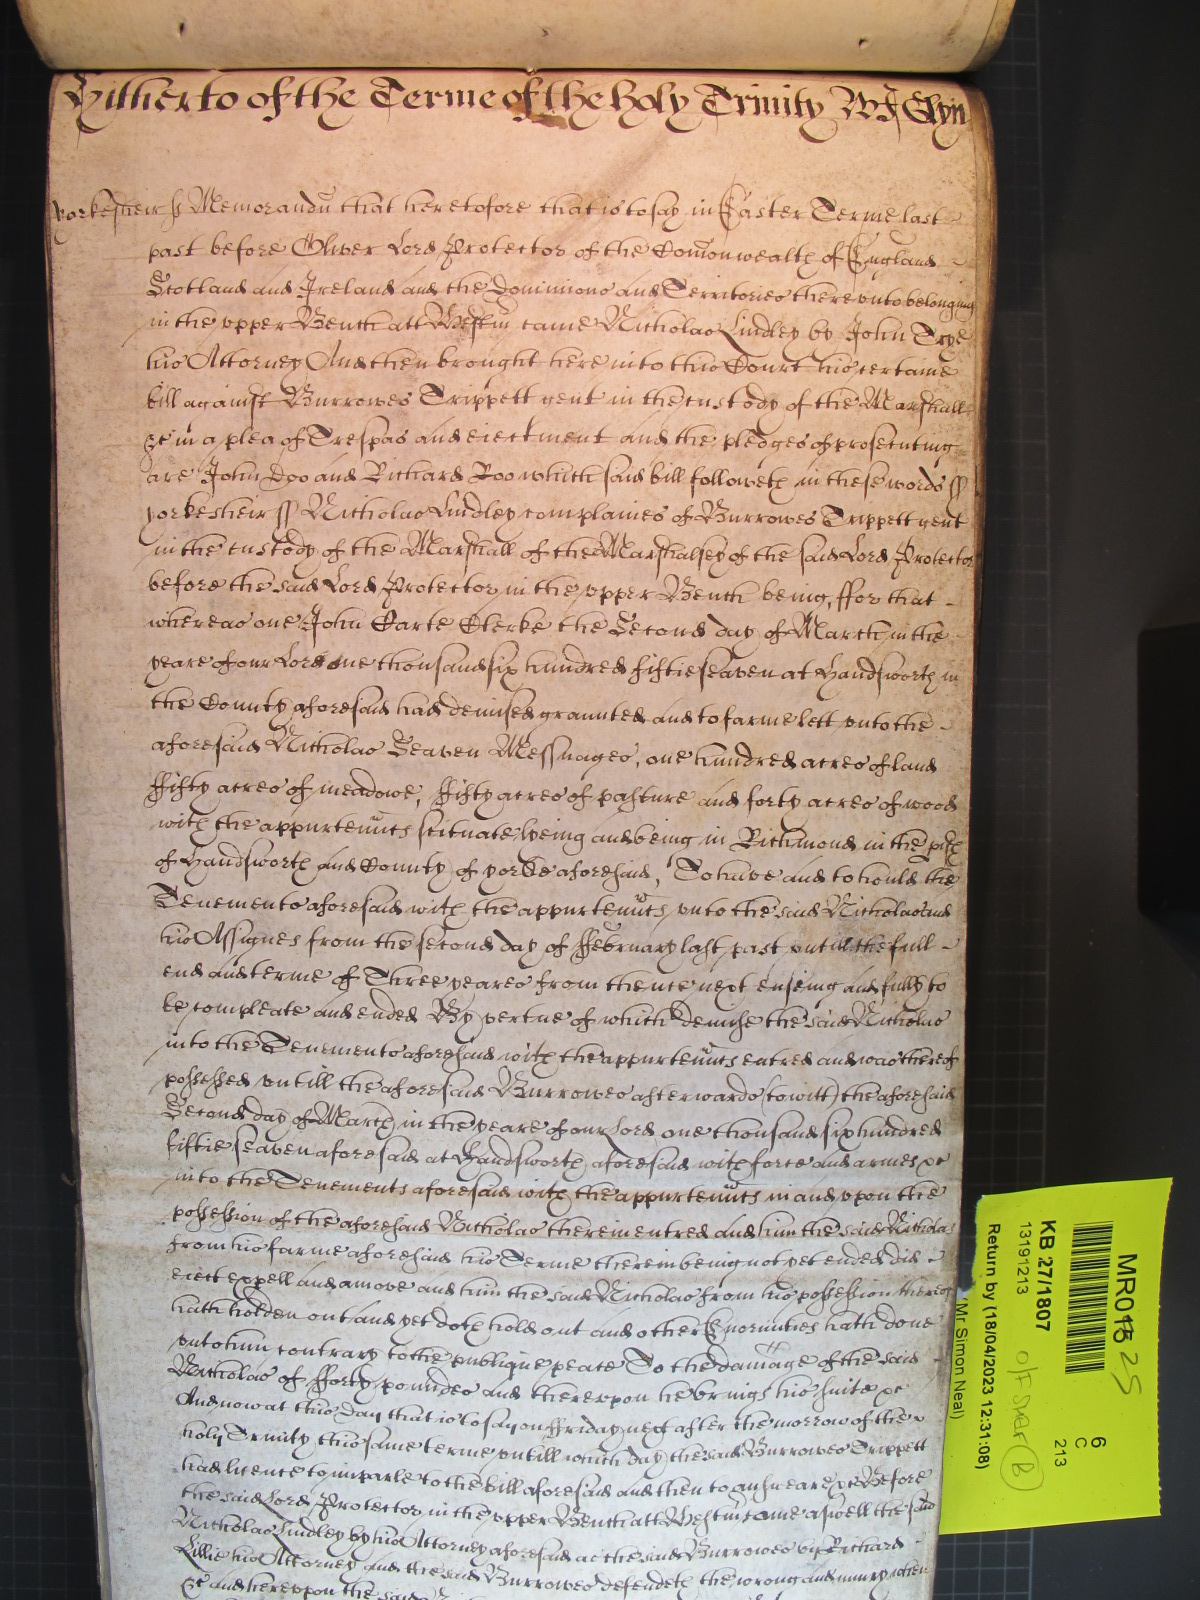 Hitherto of the Terme of the holy Trinity Wj Glyn
Yorkesheir ss Memorandu that heretofore that is to say in Easter Terme last
past before Oliver Lord Protector of the Comonwealth of England
Scotland and Ireland and the Dominions and Territories thereunto belonging
in the upper Bench att Westm came Nicholas Lindley by John Trye
his Attorney And then brought here into this Court his certaine
bill against Burrowes Trippett gent in the custody of the Marshall
&c in a plea of Trespas and eiectment and the pledges of prosecuting
are John Doo and Richard Roo which said bill followeth in these words ss
yorkesheir ss Nicholas Lindley complaines of Burrowes Trippett gent
in the custody of the Marshall of the Marshalsey of the said Lord Protector
before the said Lord Protector in the upper Bench being, ffor that
whereas one John Carte Clerke the Second day of March in the
yeare of our Lord one thousand six hundred fiftie seaven at Handsworth in
the County aforesaid had demised graunted and to farme lett unto the
aforesaid Nicholas Seaven Messuages, one hundred acres of land
ffifty acres of meadowe, ffifty acres of pasture and forty acres of wood
with the appurtenncs scituate lyeing and being in Richmond in the pish
of Handsworth and County of yorke aforesaid, To have and to hould the
Tenements aforesaid with the appurtenncs unto the said Nicholas and
his Assignes from the second day of ffebruary last past untill the full
end and terme of Three yeares from thence next ensuing and fully to
be compleate and ended By vertue of which demise the said Nicholas
into the Tenements aforesaid with the appurtenncs entred and was thereof
possessed untill the aforesaid Burrowes afterwards (to witt) the aforesaid
Second day of March in the yeare of our Lord one thousand six hundred
fiftie seaven aforesaid at Handsworth aforesaid with force and armes &c
into the Tenements aforesaid with the appurtenncs in and upon the
possession of the aforesaid Nicholas therein entred and him the said Nicholas
from his farme aforesaid his Terme therein being not yet ended did
eiect expell and amove and him the said Nicholas from his possession thereof
hath holden out and yet doth hold out and other Enormities hath done
unto him contrary to the publique peace To the damage of the said
Nicholas of fforty poundes and thereupon he brings his suite &c
And now at this day that is to say on ffriday next after the morrow of the
holy Trinity this same terme untill which day the said Burrowes Trippett
had licence to imparle to the bill aforesaid and then to answeare &c Before
the said Lord Protector in the upper Bench att Westm came aswell the said
Nicholas Lindley by his Attorney aforesaid as the said Burrowes by Richard
Lillie his Attorney and the said Burrowes defendeth the wrong and iniury when
&c and hereupon the said
MR018 25
6
C
213
KB 27/1807
13191213
Return by (18/04/2023 12:31:08)
Mr Simon Neal)
off smar (B)